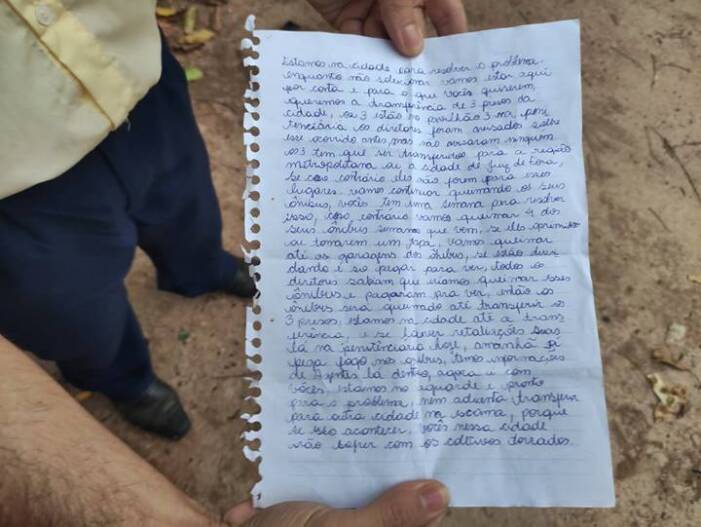 Estamos na cidade para resolver o problema,
enquanto não selecionar vamos estar aqui
por conta e para o que vocês quiserem,
queremos a transferência de 3 presos da
cidade, os 3 estão no pavilhão 3 na peni
tenciária os diretores foram avisados sobre
esse ocorrido antes, mas não avisaram ninguém
os 3 tem que ser transferidos para a região
metropolitana ou a cidade de Juiz de Fora,
se caso contrário eles não forem para esses
lugares vamos continuar queimando os seus
ônibus, vocês tem uma semana para resolver
isso, caso contrário vamos queimar 4 dos
seus ônibus semana que vem, se eles
ou tomarem um vamos queimar
até as garagens dos ônibus, se estão duvi
dando é so pagar para ver, todos os
diretores sabiam que iriamos queimar esses
ônibus e pagaram pra ver, então os
ônibus será queimado até transferir os
3 presos, estamos na cidade até a trans
ferência, e se haver retaliações
lá na penitênciaria hoje, amanhã já
pega fogo nos ônibus, temos informações
de lá dentro, agora é com
vocês, estamos no aguarde e pronto
para o problema nem adianta transferir
para outra cidade na porque
se isso acontecer, vocês nessa cidade
vão sofrer com os coletivos torrados.